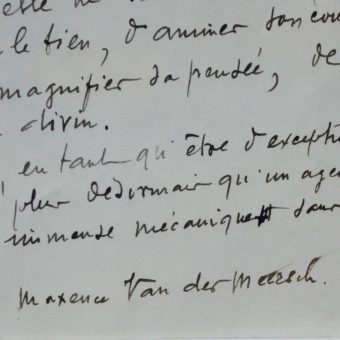 elle ne
le bien, d'animer son cou
magnifier sa pensée, de
divin.
en tant qu'être d'excepti
plus désormais qu'un age
immense mécanique dans
Maxence Van der Meersch.